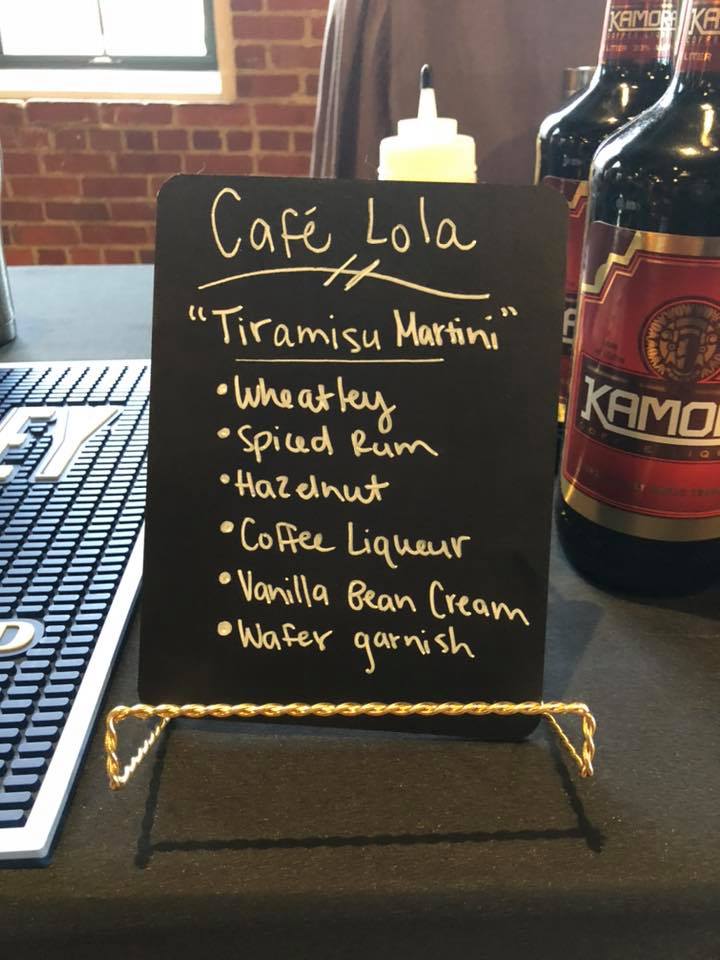 Café Lola
"Tiramisu Martini"
• Wheatley
• Spiced Rum
• Hazelnut
• Coffee Liqueur
• Vanilla Bean Cream
• Wafer garnish
KAMORA
KA
KAMO